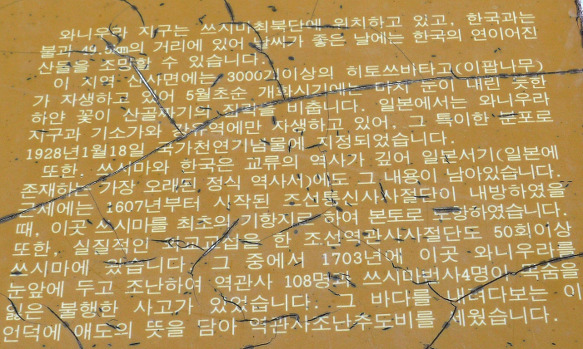 와니우라 지구는 쓰시마최북단에 위치하고 있고, 한국과는
불과 49.5km의 거리에 있어 날씨가 좋은 날에는 한국의 연이어진
산들을 조망할 수 있습니다.
이 지역 산사면에는 3000그루이상의 히토쓰바타고(이팝나무)
가 자생하고 있어 5월초순 개화시기에는 마치 눈이 내린 듯한
하얀 꽃이 산골짜기의 집락을 비춥니다. 일본에서는 와니우라
지구과 기소가와 유역에만 자생하고 있어, 그 특이한 분포로
1928년1월18일 국가천연기념물에 지정되었습니다.
또한, 쓰시마와 한국은 교류의 역사가 깊어 일본서기(일본에
존재하는 가장 오래된 정식 역사서)에도 그 내용이 남아있습니다.
근세에는 1607년부터 시작된 조선통신사사절단이 내방하였을
때, 이곳 쓰시마를 최초의 기항지로 하여 본토로 향하였습니다.
또한, 실질적인 한 조선역관사사절단도 50회이상
쓰시마에 왔습니다. 그 중에서 1703년에 이곳 와니우라를
눈앞에 두고 조난하여 역관사 108명과 쓰시마번사4명이 목숨을
잃은 불행한 사고가 있었습니다. 그 바다를 내려다보는 이
언덕에 애도의 뜻을 담아 역관사조난추도비를 세웠습니다.